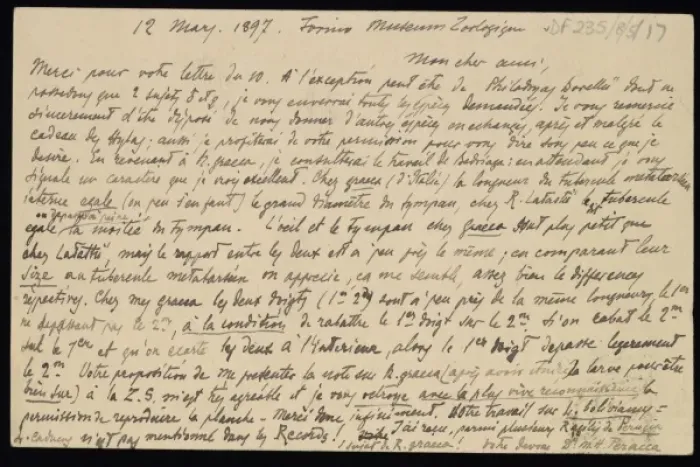 12 Mars. 1897. Torino Museum Zoologique DF 235/8/3/17
Mon cher ami,
Merci pour votre lettre du 10. A l'exception peut être de dont ne
possedons que 2 sujets ♂ et ♀, je vous enverrai toutes les espèces demandées. Je vous remercie
sincerement d'être disposé de nous donner d'autres espèces en echange, après et malgré le
cadeau des Hylas; aussi je profiterai de votre permission pour vous dire sous peu ce que je
desire. En revenant à R. graeca, je consulterai le travail de Bedriaga: en attendant je vous
signale un caractère que je crois excellent. Chez graeca (d'Italie) la longueur du tubercule metatarsien
interne egale (ou peu s'enfaut) le grand diamètre du tympan, chez R. Latastii le tubercule
egale la moitié du tympan. L'oeil et le tympan chez graeca sont plus petit que
chez Latastii, mais le rapport entre les deux est à peu près le même; en comparant leur
size au tubercule metatarsien on apprecie, ça me semble, assez bien le differences
respectives. Chez mes graeca les deux doigts (1er 2d) sont à peu près de la même longueur, le 1er
ne depassent pas le 2m, à la condition de rabattre le 1er doigt sur le 2m. Si on rabat le 2m
sur le 1er et qu'on ecarte les deux à l'interieur, alors le 1er doigt depasse legerement
le 2m. Votre proposition de me presenter la note sur R. graeca (après avoir la larve peut être
bien sur) à la Z.S. m'est très agreable et je vous octroye avec la plus vive reconnaissance la
permission de reproduire la planche - Merci donc infiniment. Votre travail sur
n'est pas mentionné dans les Records! J'ai reçu, parmi plusieurs de Perugia
1 sujet de R. graeca! Votre devoué Dr. M. G. Peracca